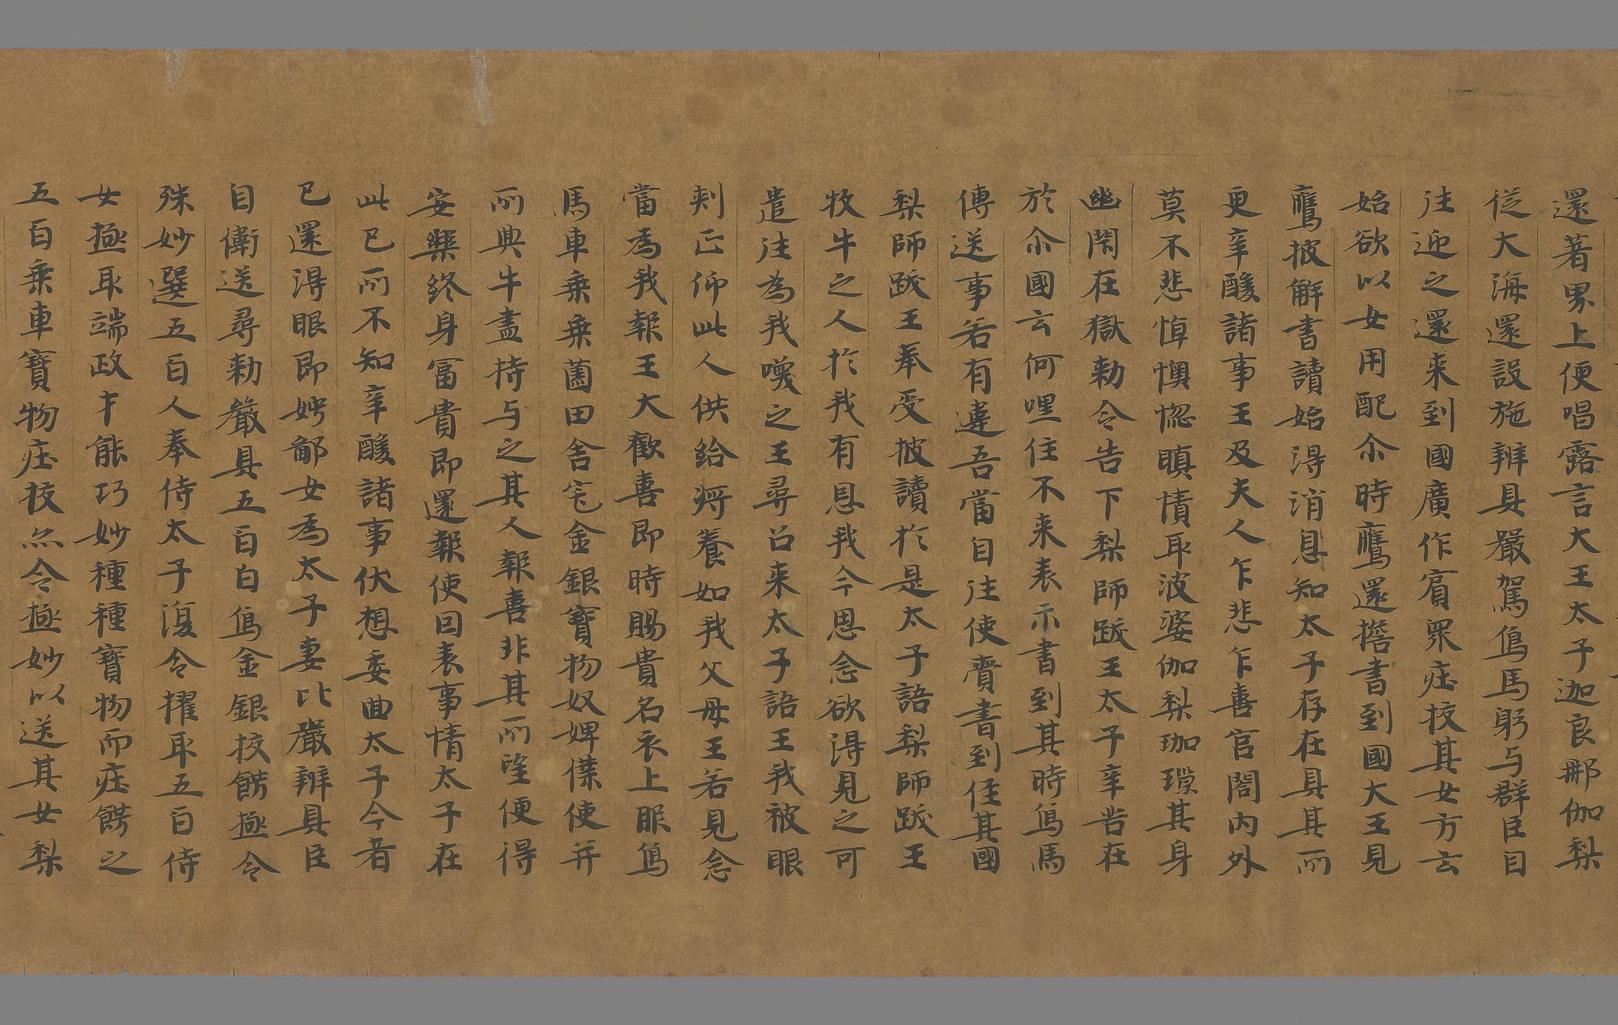 還著界上便唱露言大王太子迦良那伽梨
從大海還設施辦具嚴駕鳥馬躬与群臣自
往迎之還来到國廣作賓眾庄挍其女方云
始欲以女用配尒時鷹還擔書到國大王見
鷹披解書讀始得消息知太子存在具其所
更辛酸諸事王及夫人乍悲乍喜宫閤内外
莫不悲悼懊惚瞋憒取波婆伽梨珈璅其身
幽閑在獄勅令告下梨師跋王太子辛苦在
於尒國云何哩住不来表示書到其時鳥馬
傳送事若有違吾當自往使齎書到徃其國
梨師跋王奉受披讀於是太子語梨師跋王
牧牛之人於我有恩我今思念欲得見之可
遣往為我嘆之王尋召来太子語王我被眼
刾正仰此人供給將養如我父母王若見念
當為我報王大歡喜即時賜貴名衣上服鳥
馬車乗乗薗田舍宅金銀寶物奴婢僕使并
所典牛盡持与之其人報喜非其所望便得
安樂終身冨貴即還報使回表事情太子在
此已所不知辛酸諸事伏想委曲太子今者
已還得眼即娉鄙女為太子妻比嚴辦具臣
自衛送尋勅嚴具五百白鳥金銀挍餝極令
殊妙選五百人奉侍太子復令擢取五百侍
女極取端政才能巧妙種種寶物而庄餝之
五百乗車寶物庄挍亦令極妙以送其女梨